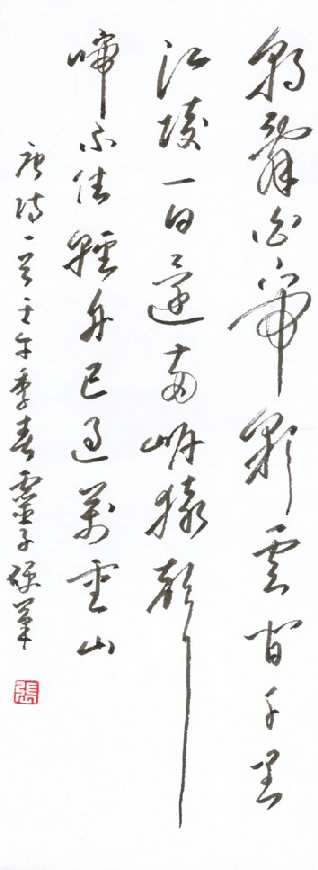 朝辭白帝彩雲間千里
江陵一日還兩岸猿聲
啼不住輕舟已過萬重山
唐詩一首壬午季春靈子硬筆
張